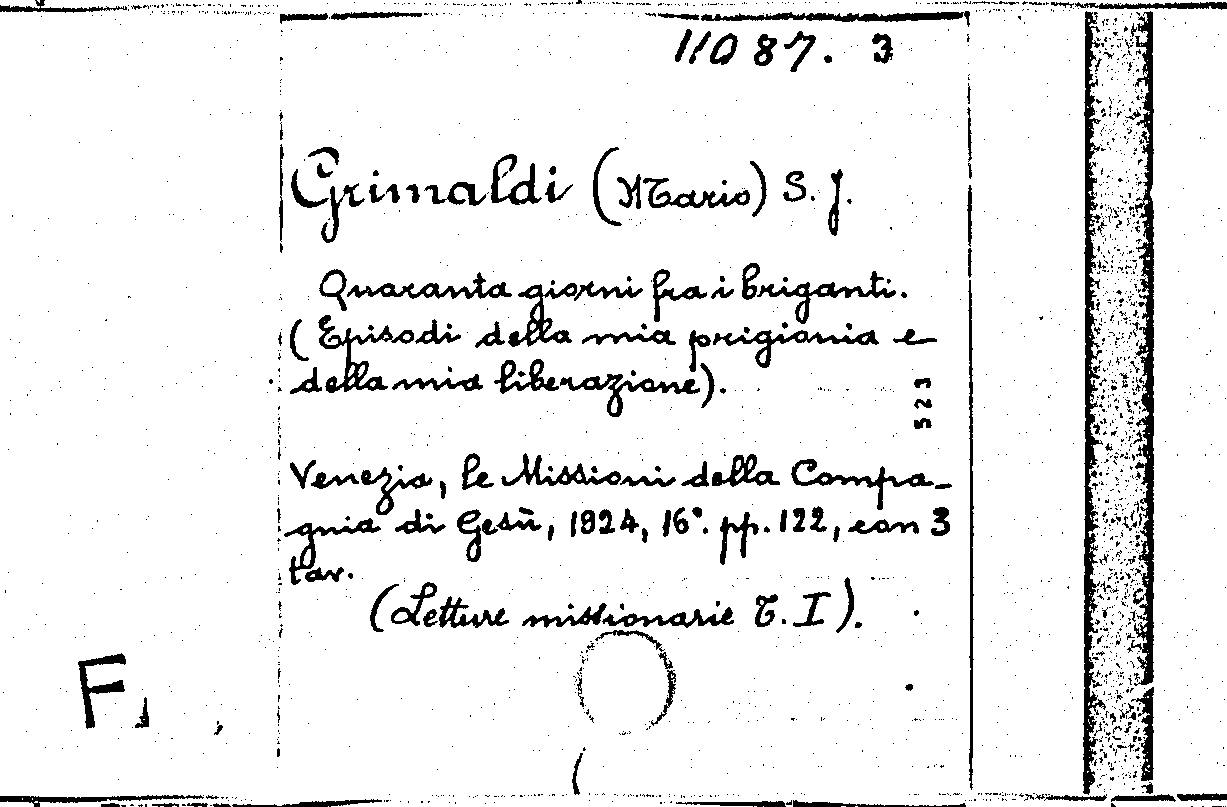 11087. 3
Grimaldi (Mario) S. J.
Quaranta giorni fra i briganti.
(Episodi della mia prigionia e
della mia liberazione).
523
Venezia, le Missioni della Compa-
gnia di Gesù, 1924, 16°. pp. 122, con 3
tav.
(Letture missionarie T. I).
F